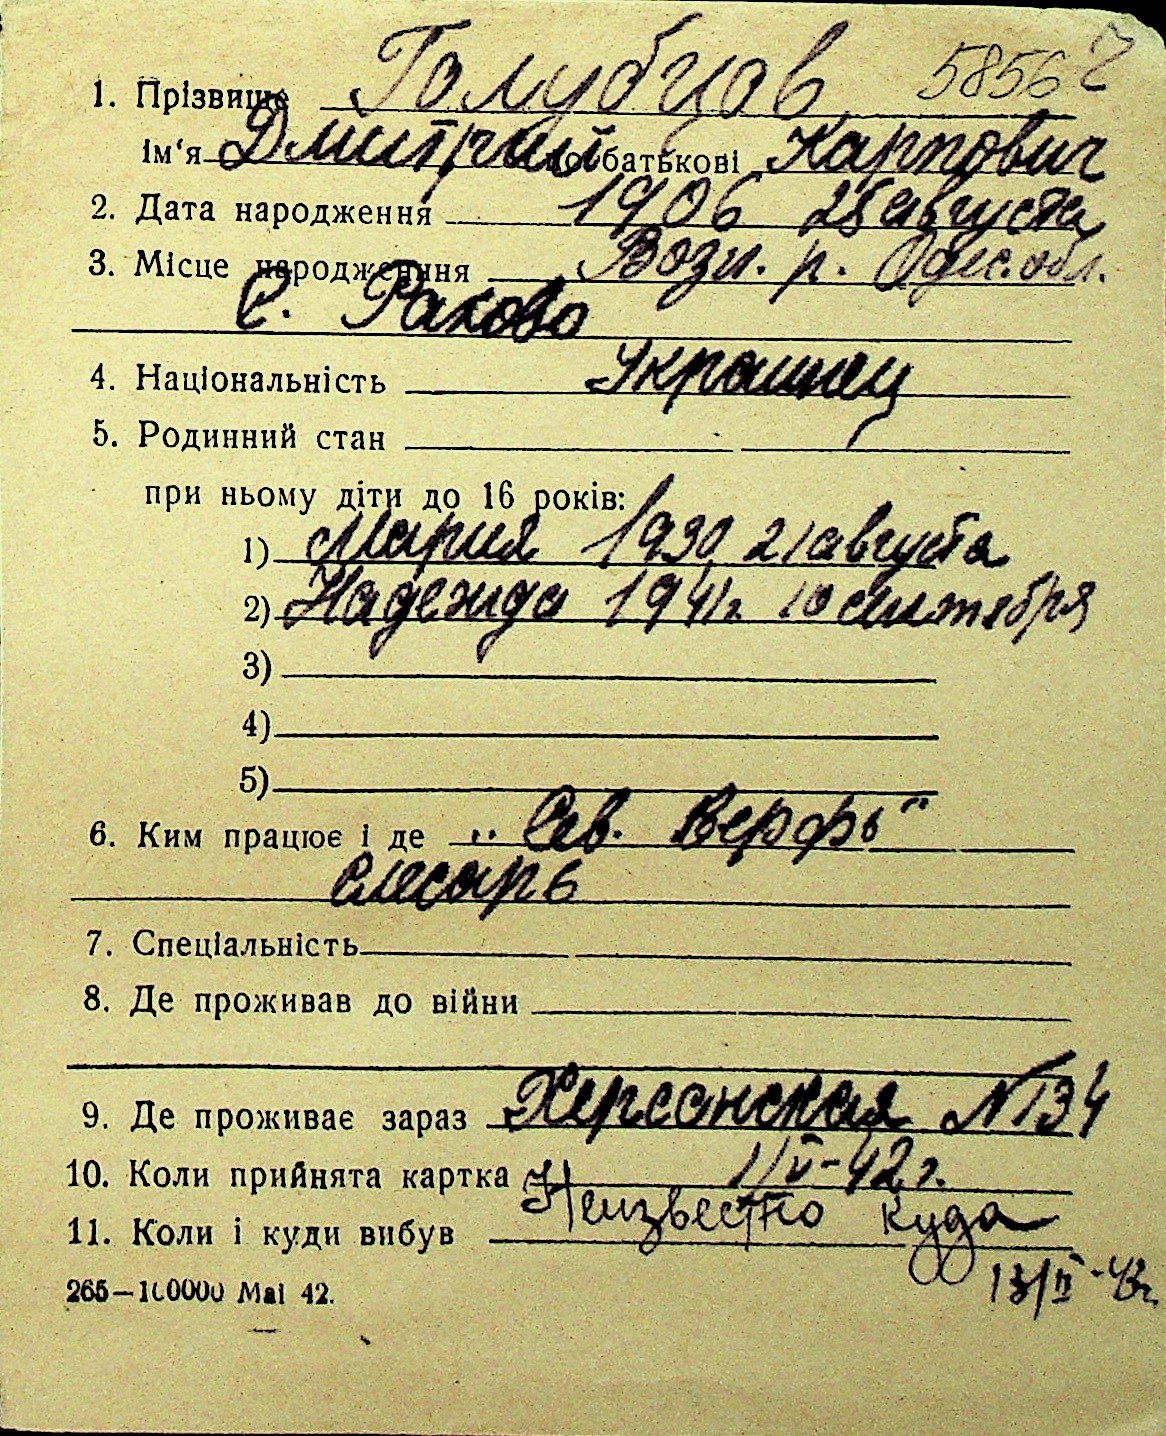 1. Прізвище Голубцов 5856
ім'я Дмитрий по батькові Карпович
2. Дата народження 1906 28 августа
3. Місце народження Возн. р. Одес. обл.
с. Раково
4. Національність Украинец
5. Родинний стан
при ньому діти до 16 років:
1) Мария 1930 21 августа
2) Надежда 1941 г. 10 сентября
3)
4)
5)
6. Ким працює і де „Сев. Верфь“
Слесарь
7. Спеціальність
8. Де проживав до війни
9. Де проживає зараз Херсонская №134
10. Коли прийнята картка 1/V-42 г.
11. Коли і куди вибув Неизвестно куда
13/II-43г.
265—100000 Mai 42.